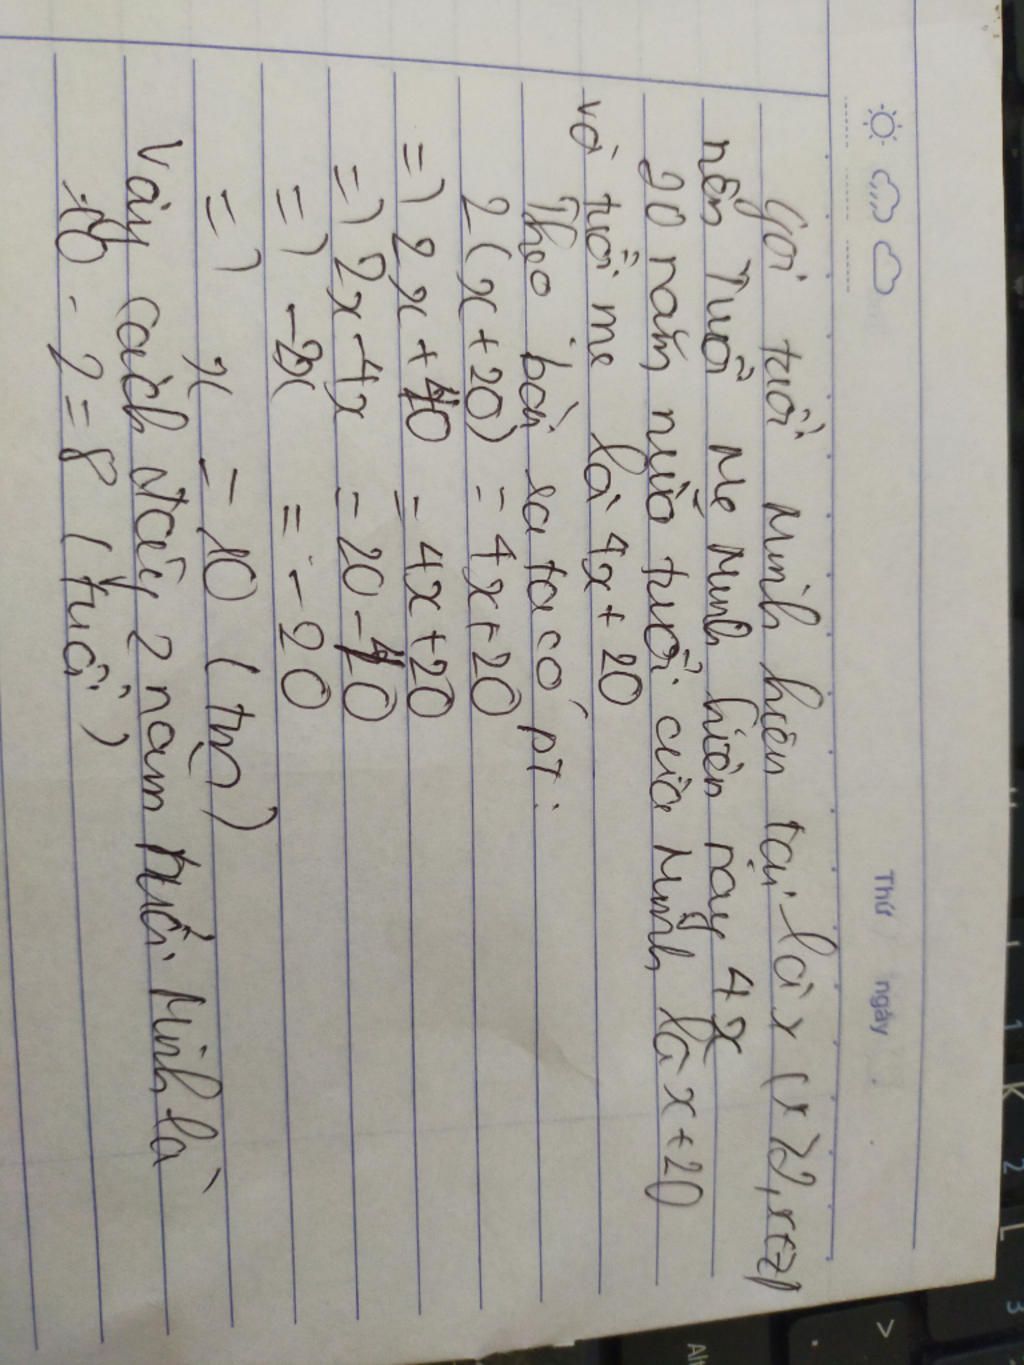 Thứ ngày
Gọi tuổi Minh hiện tại là x (x>2,
nên Tuổi Mẹ Minh hiện nay 4x
20 năm nữa tuổi của Minh là x+20
và tuổi mẹ là 4x+20
Theo bài ra ta có pt:
2(x+20) = 4x+20
=) 2x+40 = 4x+20
=) 2x-4x = 20-40
=) -2x = -20
=) x = 10 (tm)
Vậy cách đây 2 năm tuổi Minh là
10 - 2 = 8 (tuổi)
K
L
1
2
3
>
.
Alt